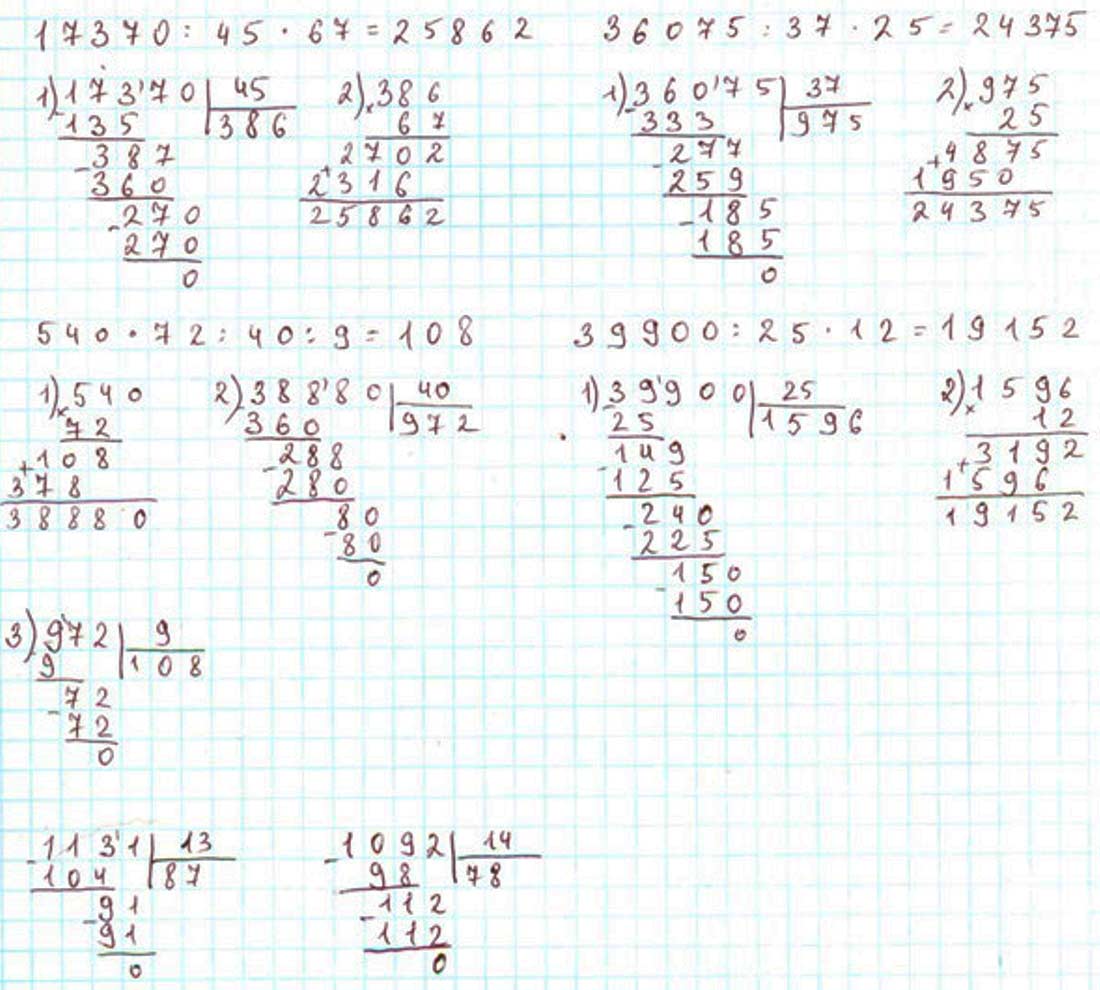 17370 : 45 · 67 = 25862
1) 17370 | 45
- 135 | 386
- 387
360
- 270
270
0
2) × 386
67
+ 2702
2316
25862
36075 : 37 · 25 = 24375
1) 36075 | 37
- 333 | 975
- 277
259
- 185
185
0
2) × 975
25
+ 4875
1950
24375
540 · 72 : 40 : 9 = 108
1) × 540
72
+ 108
378
38880
2) 38880 | 40
- 360 | 972
- 288
280
- 80
80
0
39900 : 25 · 12 = 19152
1) 39900 | 25
- 25 | 1596
- 149
125
- 240
225
- 150
150
0
2) × 1596
12
+ 3192
1596
19152
3) 972 | 9
- 9 | 108
- 72
72
0
- 1131 | 13
104 | 87
- 91
91
0
- 1092 | 14
98 | 78
- 112
112
0